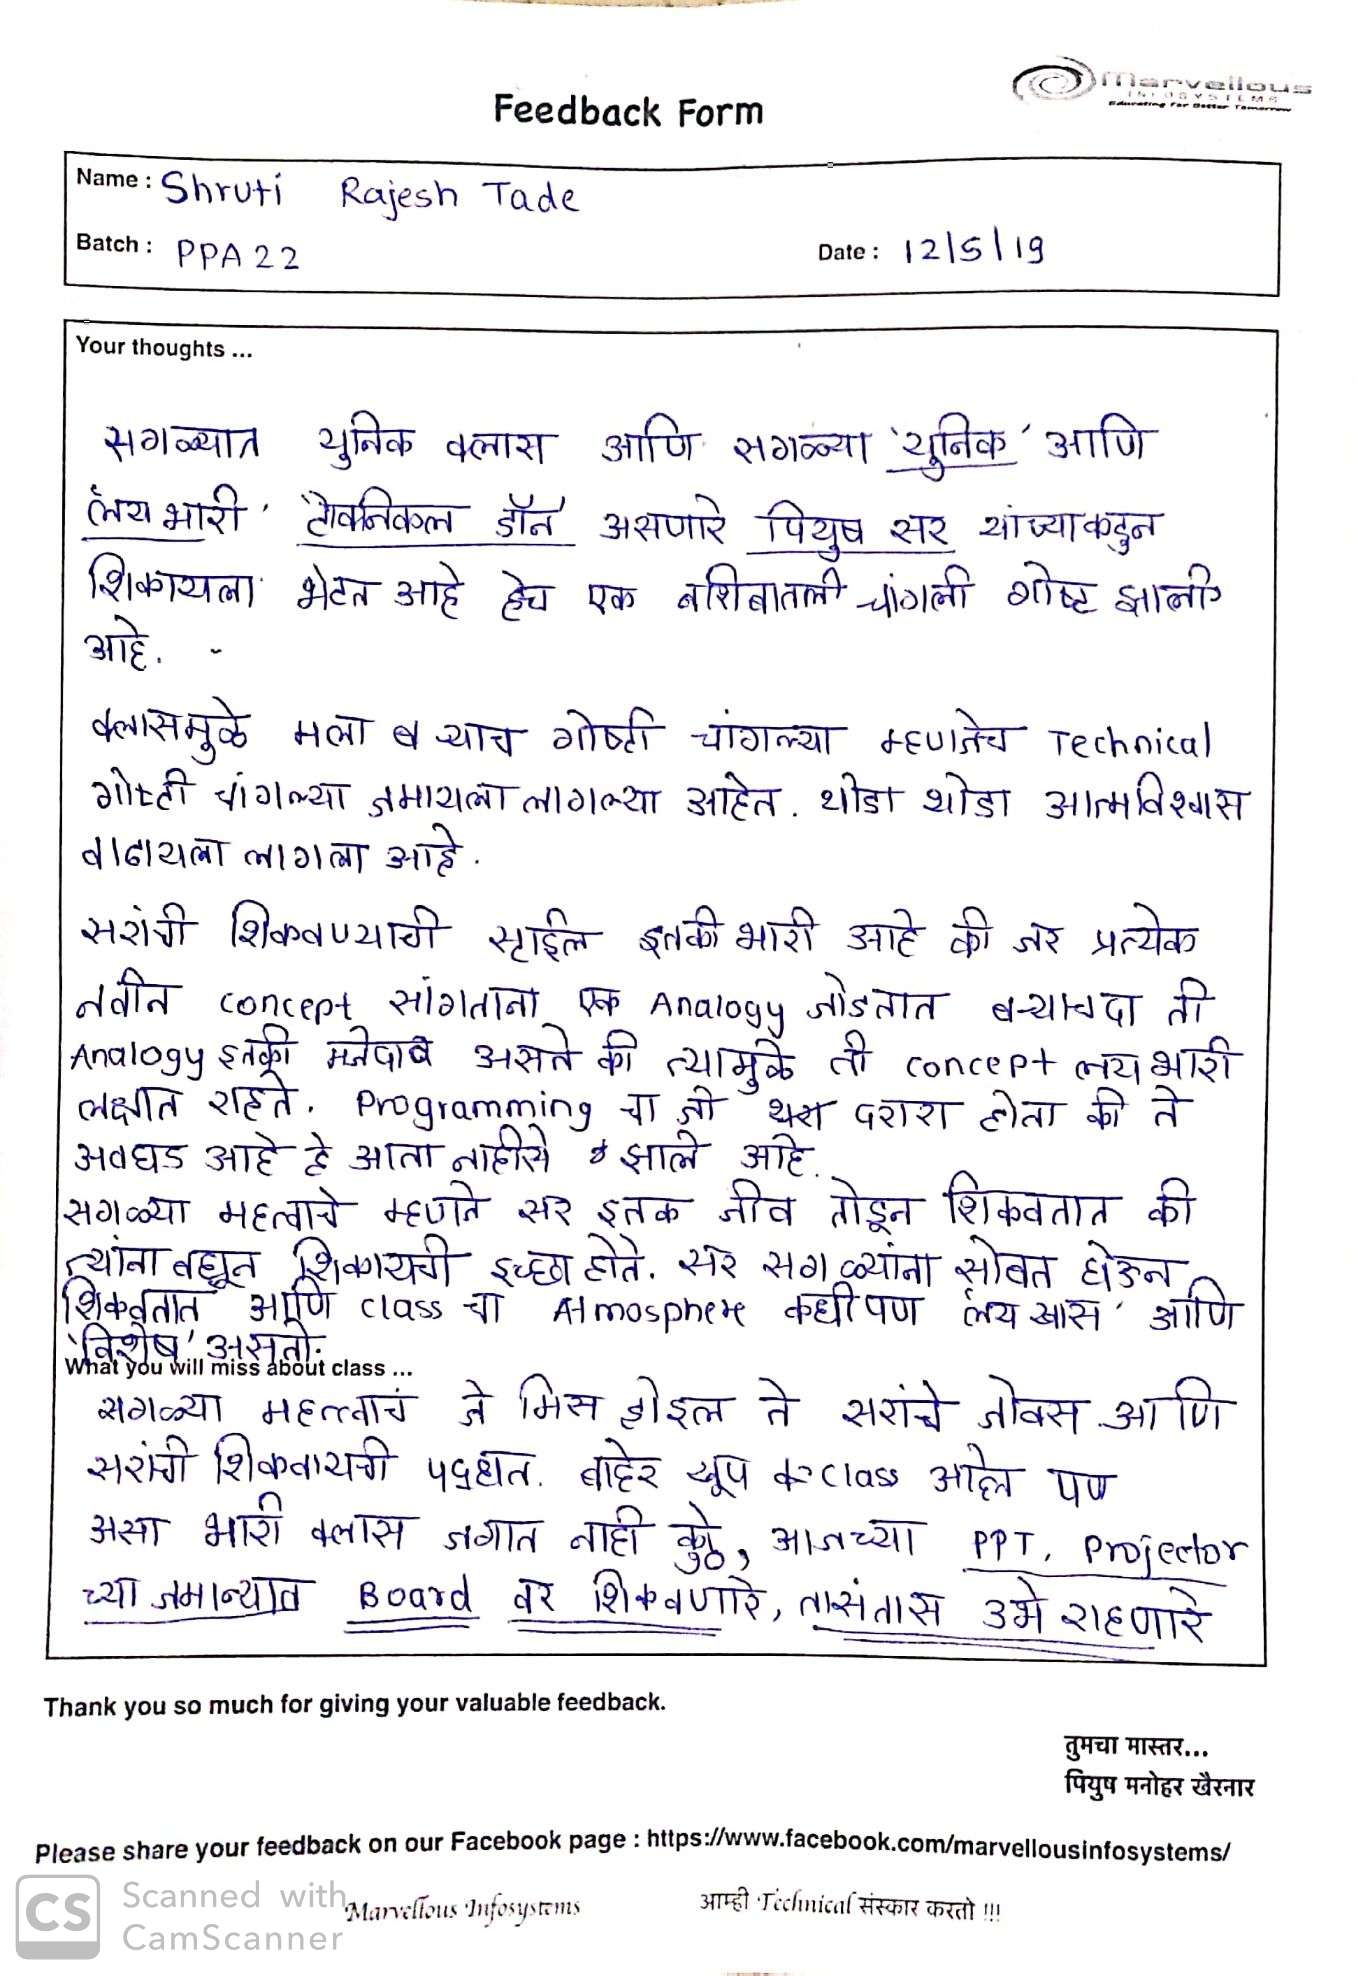 Marvellous
INFOSYSTEMS
Educating For Better Tomorrow
Feedback Form
Name : Shruti Rajesh Tade
Batch : PPA 22
Date : 12/5/19
Your thoughts ...
सगळ्यात युनिक क्लास आणि सगळ्या 'युनिक' आणि
'लय भारी' 'टेक्निकल डॉन' असणारे पियुष सर यांच्याकडुन
शिकायला भेटत आहे हेच एक नशिबातली चांगली गोष्ट झाली
आहे.
क्लासमुळे मला बऱ्याच गोष्टी चांगल्या म्हणजेच Technical
गोष्टी चांगल्या जमायला लागल्या आहेत. थोडा थोडा आत्मविश्वास
वाढायला लागला आहे.
सरांची शिकवण्याची स्टाईल इतकी भारी आहे की जर प्रत्येक
नवीन concept सांगताना एक Analogy जोडतात बऱ्याचदा ती
Analogy इतकी मजेदार असते की त्यामुळे ती concept लय भारी
लक्षात राहते. Programming चा जो दरारा होता की ते
अवघड आहे हे आता नाहीसे झाले आहे.
सगळ्या महत्वाचे म्हणजे सर इतक जीव तोडून शिकवतात की
त्यांना बघून शिकायची इच्छा होते. सर सगळ्यांना सोबत घेऊन
शिकवतात आणि class चा Atmosphere कधीपण 'लय खास' आणि
'विशेष' असतो.
What you will miss about class ...
सगळ्या महत्त्वाचं जे मिस होइल ते सरांचे जोक्स आणि
सरांची शिकवायची पद्धत. बाहेर खूप class आहेत पण
असा भारी क्लास जगात नाही कुठे, आजच्या PPT, Projector
च्या जमान्यात Board वर शिकवणारे, तासंतास उभे राहणारे
Thank you so much for giving your valuable feedback.
तुमचा मास्तर...
पियुष मनोहर खैरनार
Please share your feedback on our Facebook page : https://www.facebook.com/marvellousinfosystems/
CS Scanned with
CamScanner
Marvellous Infosystems
आम्ही Technical संस्कार करतो !!!